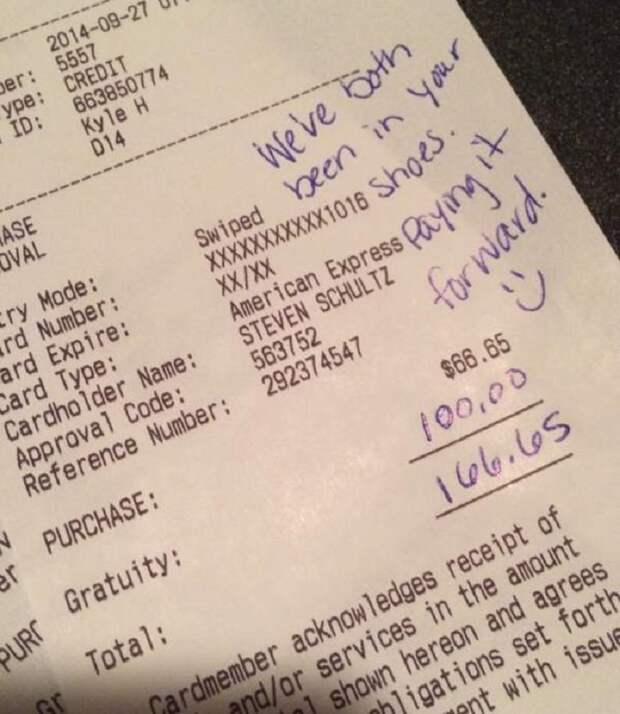 2014-09-27
ber: 5557
ype: CREDIT
ID: 663850774
Kyle H
D14
We've both
been in your
shoes.
Paying it
forward.
ASE
OVAL
ry Mode: Swiped
rd Number: XXXXXXXXXXX1016
ard Expire: XX/XX
Card Type: American Express
Cardholder Name: STEVEN SCHULTZ
Approval Code: 563752
Reference Number: 292374547
PURCHASE: $66.65
Gratuity: 100.00
Total: 166.65
Cardmember acknowledges receipt of
and/or services in the amount
shown hereon and agrees
obligations set forth
ent with issue
er
PURC
Gr